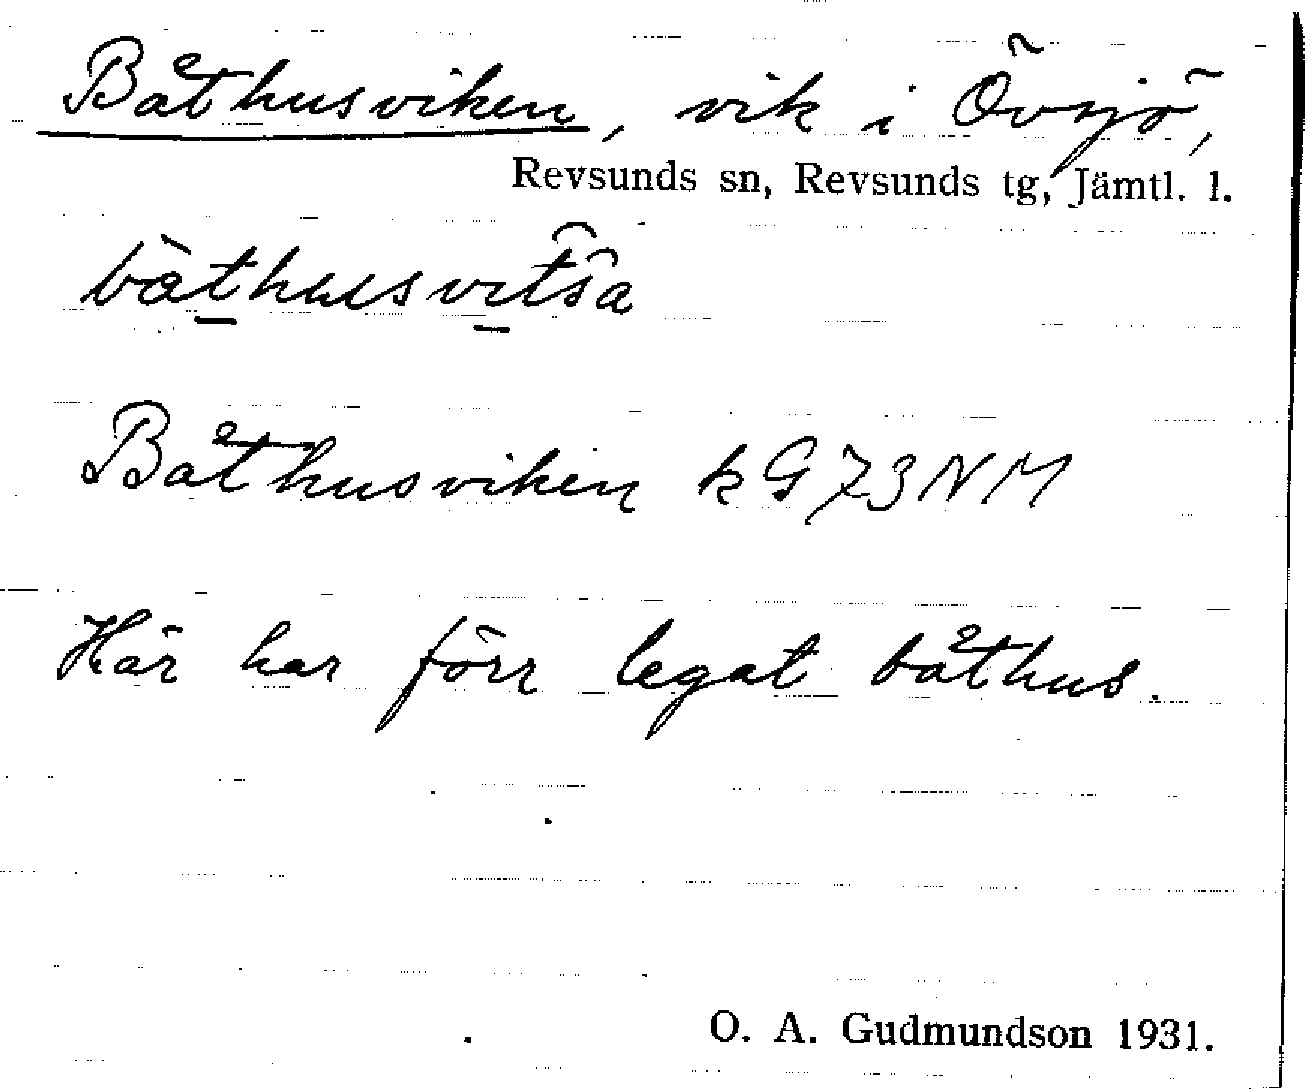 Båthusviken, vik i Övsjö,
Revsunds sn, Revsunds tg, Jämtl. l.
bàthusvitša
Båthusviken kG73NM
Här har förr legat båthus.
O. A. Gudmundson 1931.